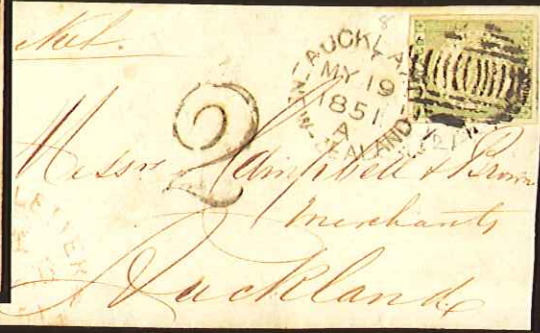 8
AUCKLAND
MY 19
1851
A
NEW-ZEALAND
2
Messrs Campbell & Brown
Merchants
Auckland
LETTER